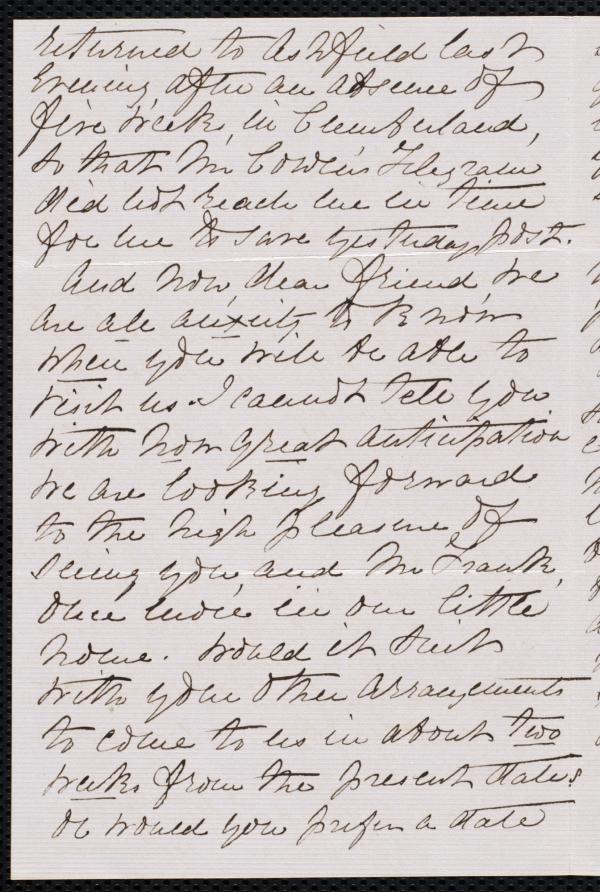 returned to Ashfield last
Evening after an absence of
five weeks, in Cumberland,
so that Mr Cowen's Telegram
did not reach me in time
for me to save yesterdays post.
And now, dear friend, we
are all anxiety to know
when you will be able to
visit us. I cannot tell you
with how great anticipation
we are looking forward
to the high pleasure of
seeing you, and Mr Frank,
once more in our little
home. Would it suit
with your other arrangements
to come to us in about two
weeks from the present date?
or would you prefer a date